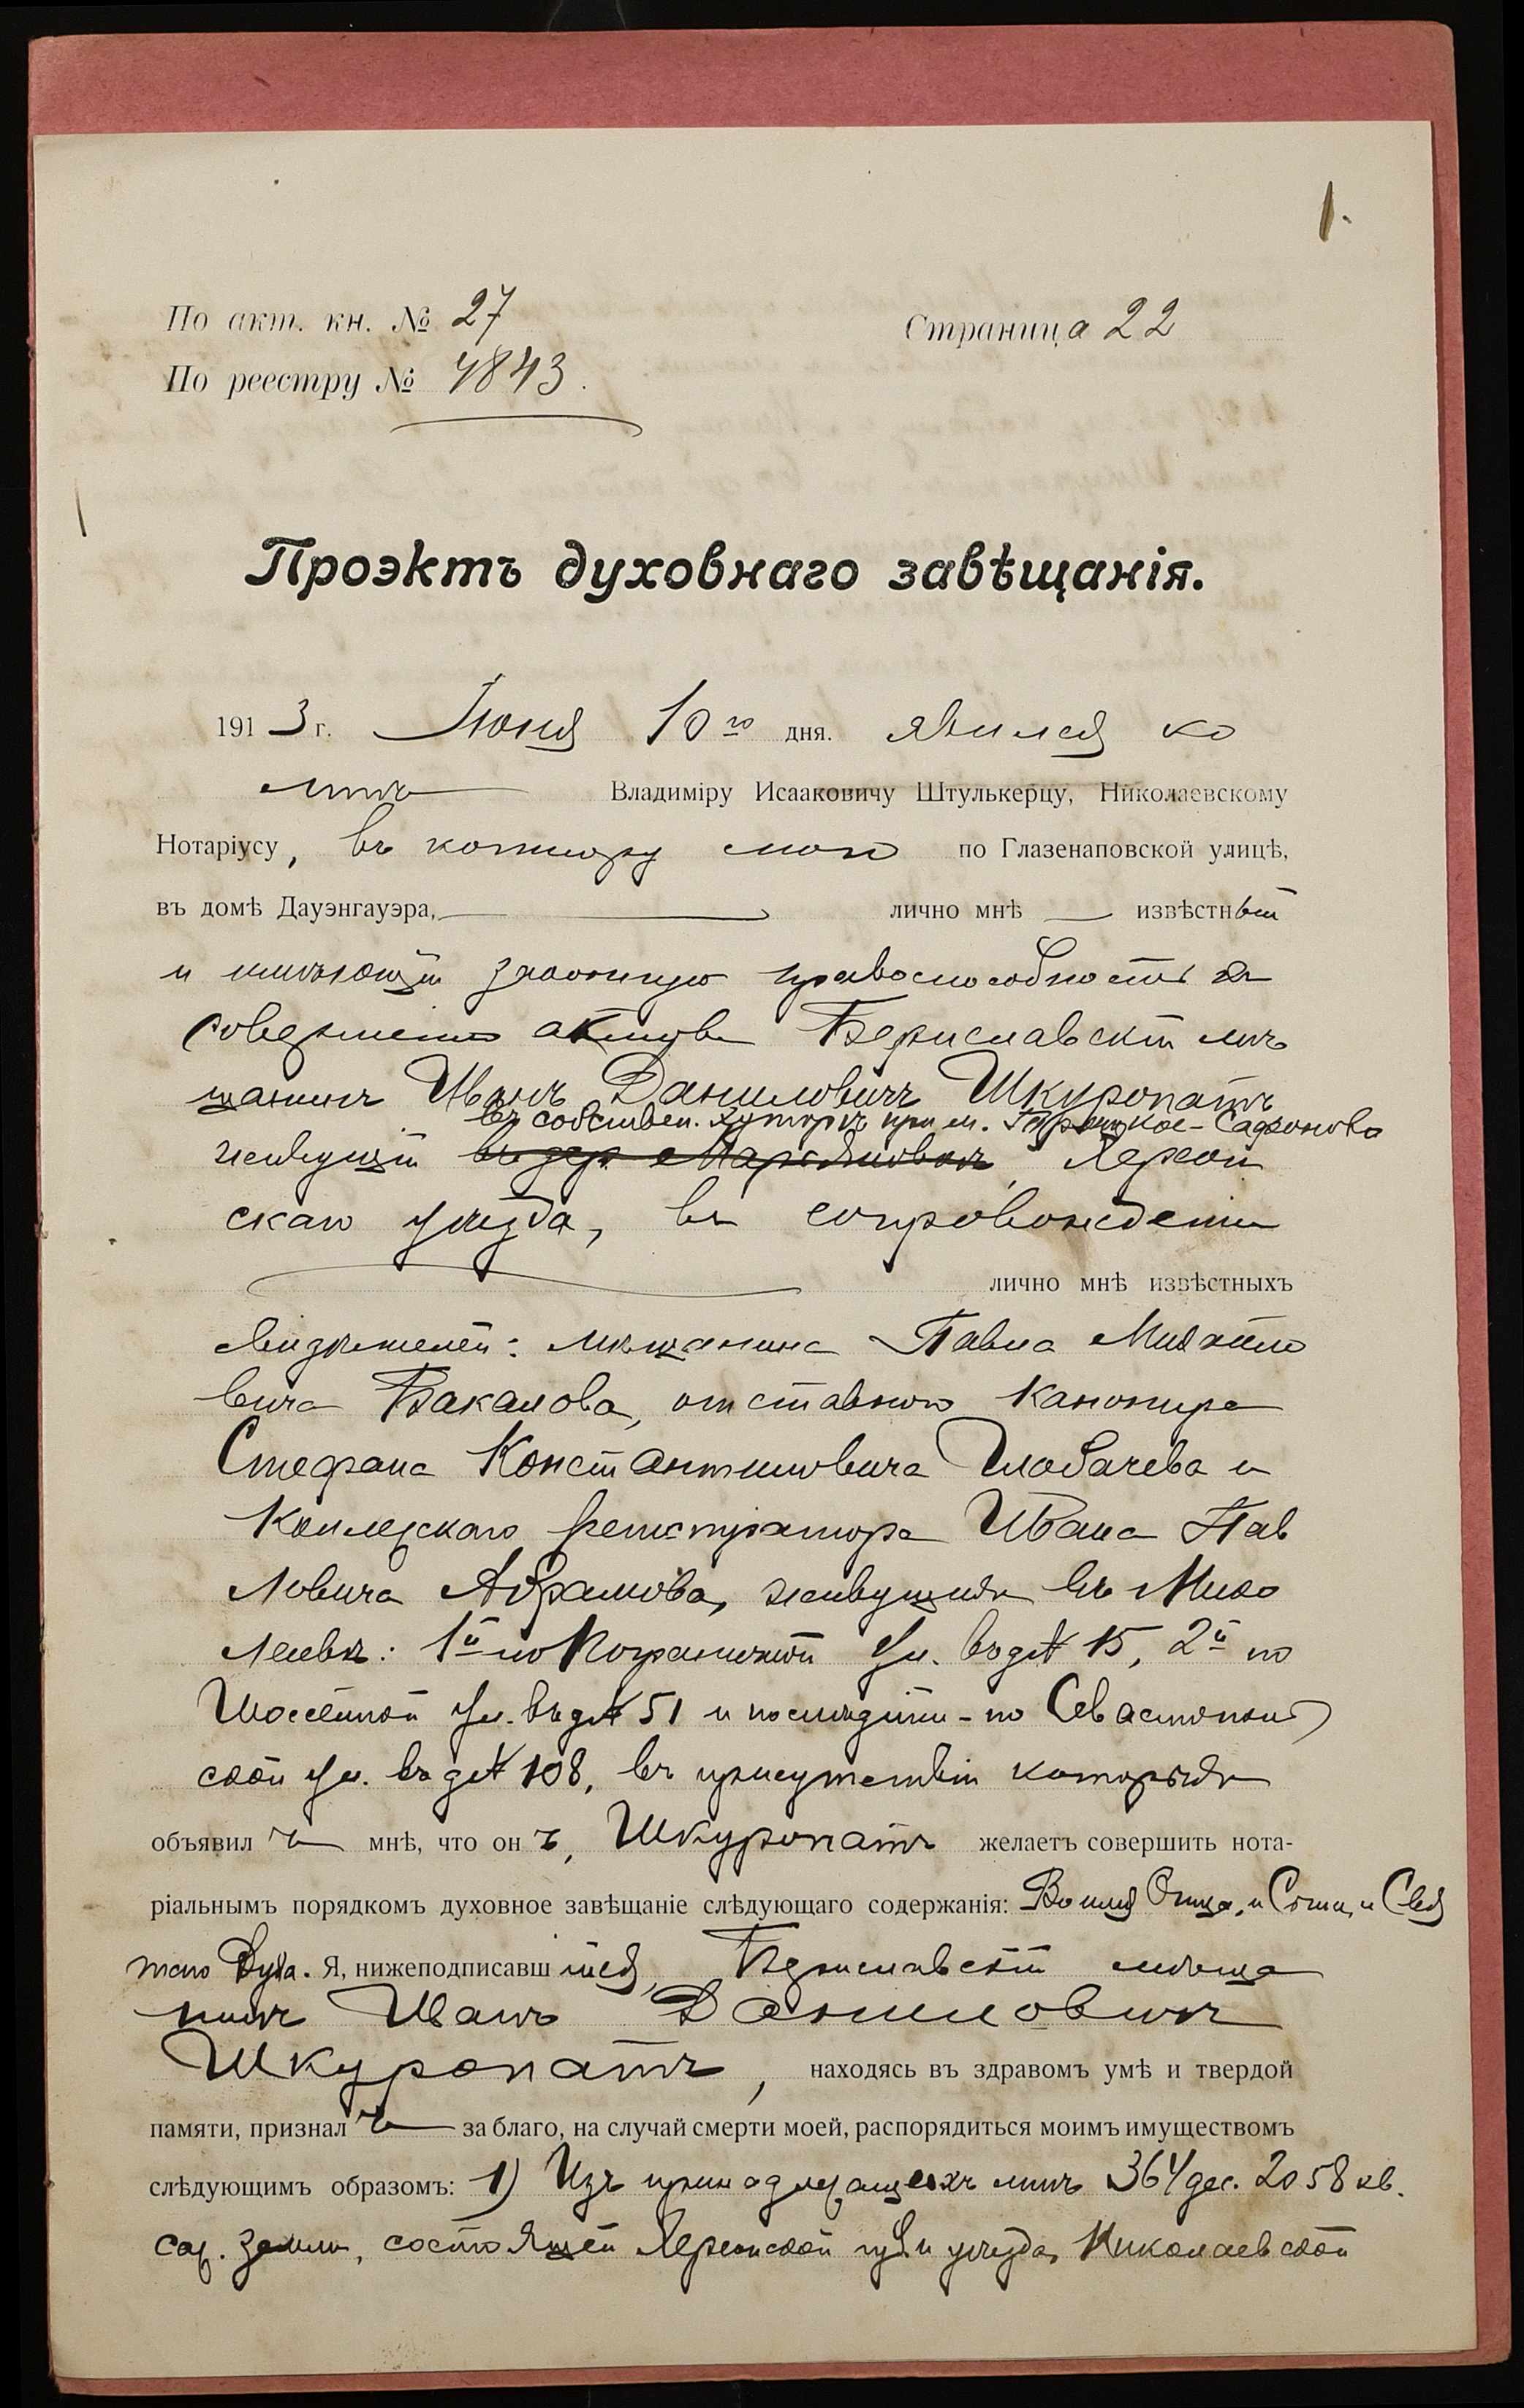 1.
По акт. кн. № 27
Страница 22
По реестру № 4843.
Проэктъ духовнаго завѣщанія.
1913 г. Іюня 10го дня. явился ко
мнѣ Владиміру Исааковичу Штулькерцу, Николаевскому
Нотаріусу, въ контору мою по Глазенаповской улицѣ,
въ домѣ Дауэнгауэра, лично мнѣ извѣстный
и имѣющій законную правоспособность къ
совершенію актовъ Бериславскій мѣ
щанинъ Иванъ Даниловичъ Шкуропатъ
въ собствен. хуторѣ при м. -Сафоново
живущій въ дер. Марьяновкѣ, Херсон
скаго уѣзда, въ сопровожденіи
лично мнѣ извѣстныхъ
свидѣтелей: мѣщанина Павла Михайло
вича Бакалова, отставного канонира
Стефана Константиновича Глобачева и
Коллежскаго регистратора Ивана Пав
ловича Абрамова, живущихъ въ Нико
лаевѣ: 1й по Пограничной ул. въ д № 15, 2й по
Шоссейной ул. въ д № 51 и послѣдній - по Севастополь
ской ул. въ д № 108, въ присутствіи которыхъ
объявилъ мнѣ, что онъ, Шкуропатъ желаетъ совершить нота-
ріальнымъ порядкомъ духовное завѣщаніе слѣдующаго содержанія: Во имя Отца, и Сына, и Свя
таго Духа. Я, нижеподписавшійся, Бериславскій мѣща
нинъ Иванъ Даниловичъ
Шкуропатъ, находясь въ здравомъ умѣ и твердой
памяти, призналъ за благо, на случай смерти моей, распорядиться моимъ имуществомъ
слѣдующимъ образомъ: 1) Изъ принадлежащихъ мнѣ 364 дес. 2058 кв.
саж. земли, состоящей Херсонской губ и уѣзда, Николаевской